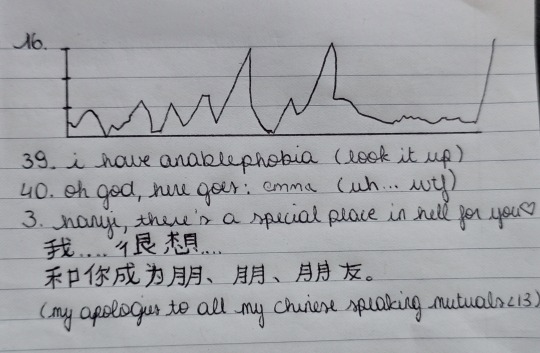 16.
39. i have anablephobia (look it up)
40. oh god, here goes: emma (uh... wtf)
3. hanyi, there's a special place in hell for you♡
我....很想....
和你成为朋、朋、朋友。
(my apologies to all my chinese speaking mutuals<13)